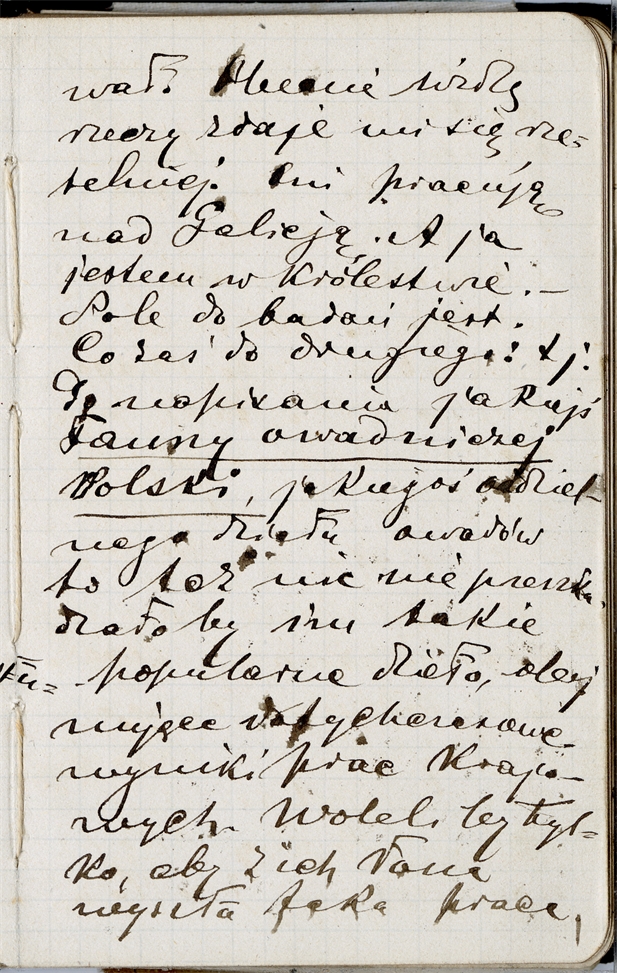 wał. Obecnie
rzeczy zdaje mi się rze=
telniej. Oni pracują
nad Galicją. A ja
jestem w Królestwie. —
Pole do badań jest.
Co zaś do drugiego: tj.
do napisania jakiejś
Fauny owadniczej
Polski, jakiegoś oddziel-
nego działu owadów
to też nic nie przeszka-
dzałoby im takie
popularne dzieło, obej
mujące dotychczasowe
wyniki prac krajo-
wych. Woleli by tyl=
ko, aby z ich łona
wyszła taka praca,